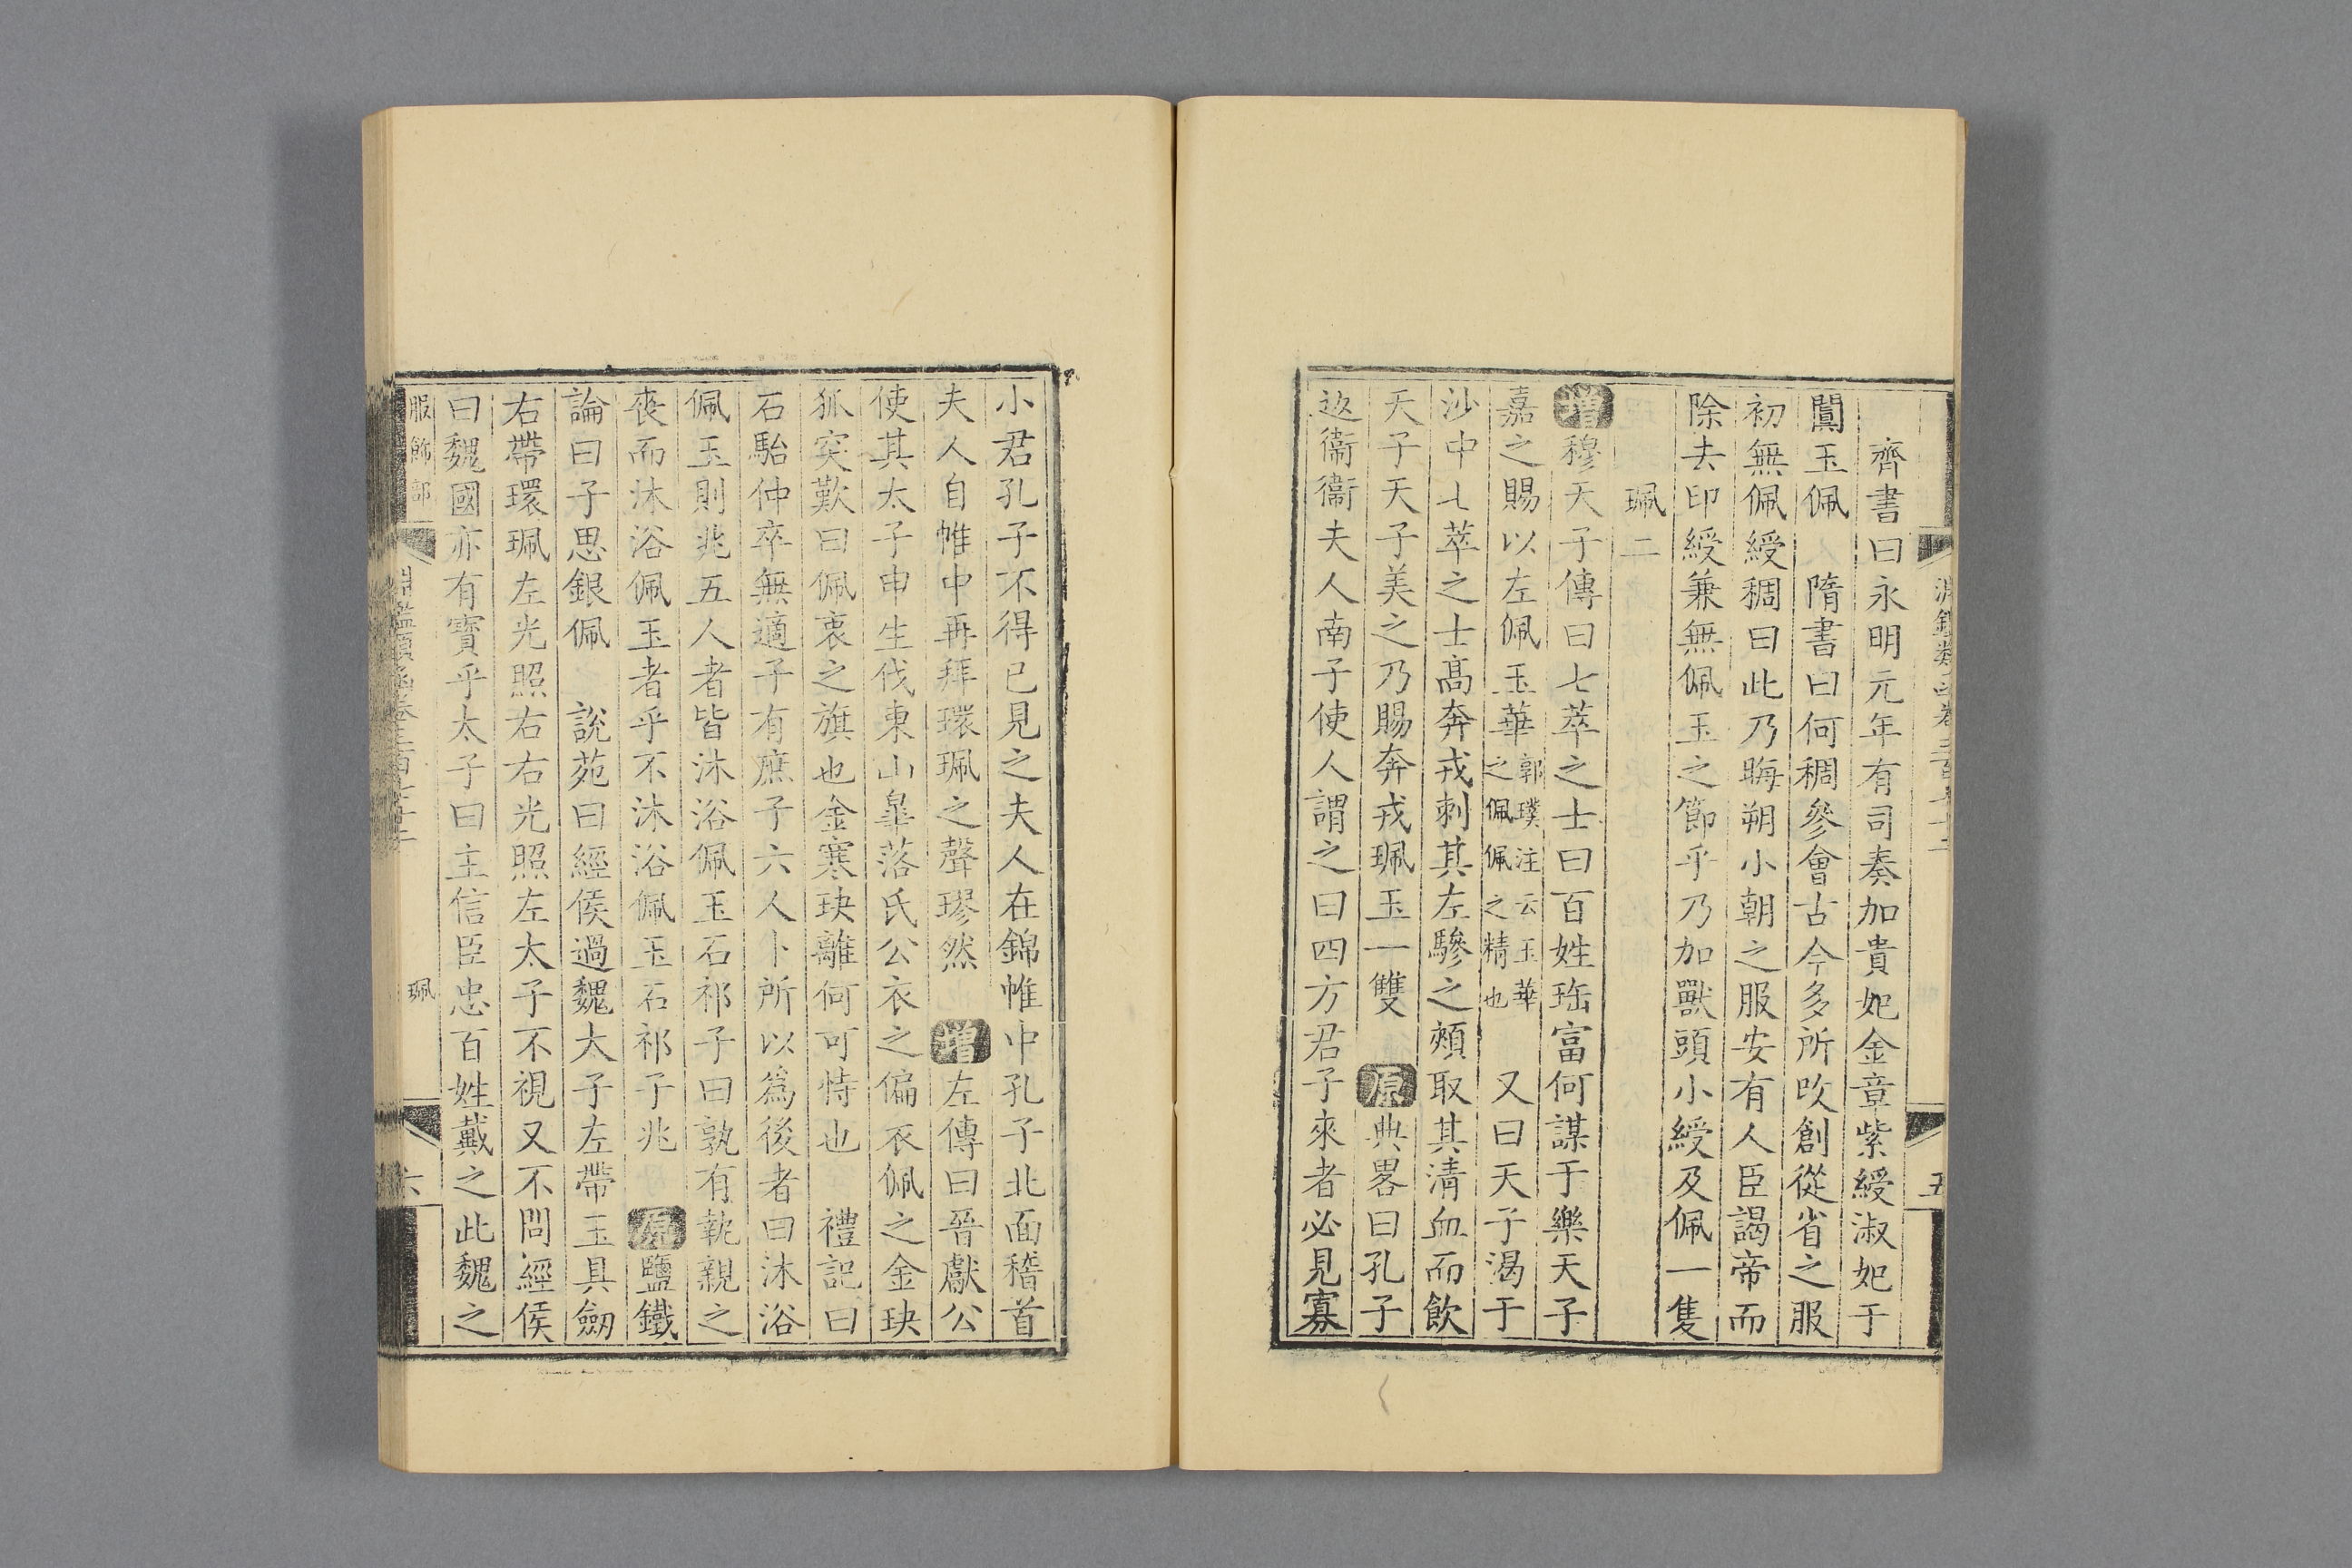 齊書曰永明元年有司奏加貴妃金章紫綬淑妃于
闐玉佩　隋書曰何稠參會古今多所改創從省之服
初無佩綬稠曰此乃晦朔小朝之服安有人臣謁帝而
除去印綬兼無佩玉之節乎乃加獸頭小綬及佩一隻
珮二
增穆天子傳曰七萃之士曰百姓珤富何謀于樂天子
嘉之賜以左佩玉華郭璞注云玉華之佩佩之精也　又曰天子渴于
沙中七萃之士髙奔戎刺其左驂之頰取其清血而飲
天子天子美之乃賜奔戎珮玉一雙　原典畧曰孔子
返衞衞夫人南子使人謂之曰四方君子來者必見寡
小君孔子不得已見之夫人在錦帷中孔子北面稽首
夫人自帷中再拜環珮之聲璆然　增左傳曰晉獻公
使其太子申生伐東山皐落氏公衣之偏衣佩之金玦
狐突歎曰佩衷之旗也金寒玦離何可恃也　禮記曰
石駘仲卒無適子有庶子六人卜所以為後者曰沐浴
佩玉則兆五人者皆沐浴佩玉石祁子曰孰有執親之
喪而沐浴佩玉者乎不沐浴佩玉石祁子兆　原鹽鐵
論曰子思銀佩　說苑曰經侯過魏太子左帶玉具劔
右帶環珮左光照右右光照左太子不視又不問經侯
曰魏國亦有寳乎太子曰主信臣忠百姓戴之此魏之
服飾部　淵鑑類函卷三百七十二　珮　六